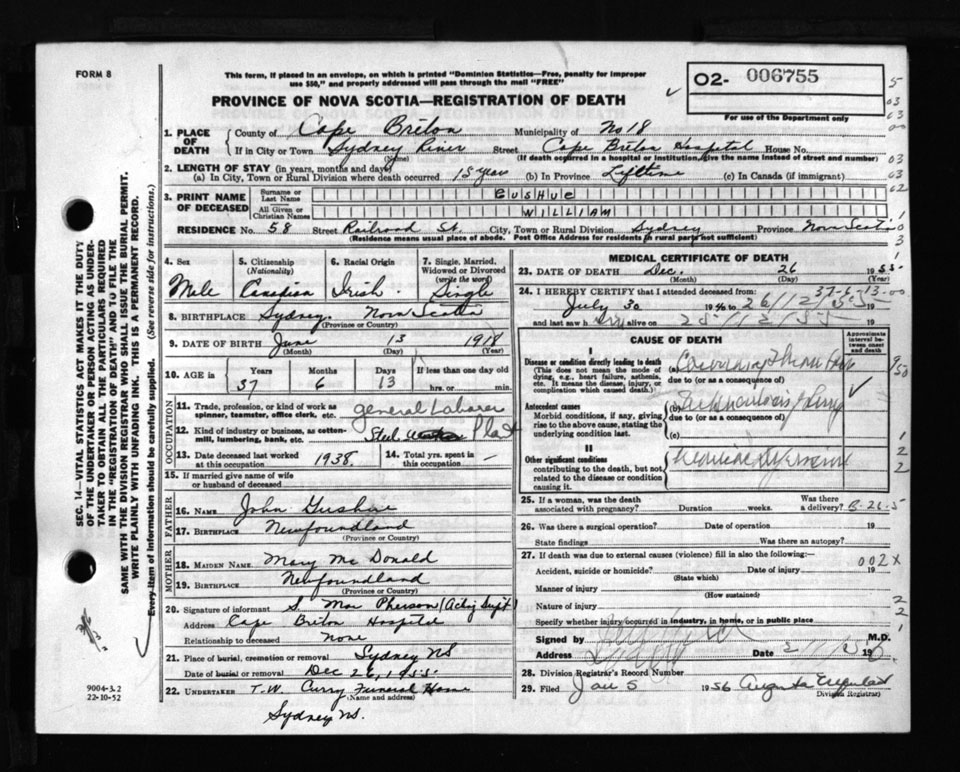 FORM 8
This form, if placed in an envelope, on which is printed "Dominion Statistics—Free, penalty for improper
use $50," and properly addressed will pass through the mail "FREE"
PROVINCE OF NOVA SCOTIA—REGISTRATION OF DEATH
O2- 006755
For use of the Department only
1. PLACE OF DEATH County of Cape Breton Municipality of No 18
If in City or Town Sydney River Street Cape Breton Hospital House No.
(Name) (If death occurred in a hospital or institution, give the name instead of street and number)
2. LENGTH OF STAY (in years, months and days)
(a) In City, Town or Rural Division where death occurred 15 year (b) In Province Lifetime (c) In Canada (if immigrant)
3. PRINT NAME OF DECEASED Surname or Last Name GUSHUE
All Given or Christian Names WILLIAM
RESIDENCE No. 58 Street Railroad St. City, Town or Rural Division Sydney Province Nova Scotia
(Residence means usual place of abode. Post Office Address for residents in rural parts not sufficient)
4. Sex Male
5. Citizenship (Nationality) Canadian
6. Racial Origin Irish
7. Single, Married, Widowed or Divorced (write the word) Single
8. BIRTHPLACE Sydney. Nova Scotia
(Province or Country)
9. DATE OF BIRTH June 13 1918
(Month) (Day) (Year)
10. AGE in Years 37 Months 6 Days 13 If less than one day hrs. or min.
OCCUPATION
11. Trade, profession, or kind of work as spinner, teamster, office clerk, etc. general Laborer
12. Kind of industry or business, as cotton-mill, lumbering, bank, etc. Steel Plant
13. Date deceased last worked at this occupation 1938.
14. Total yrs. spent in this occupation —
15. If married give name of wife or husband of deceased
FATHER
16. NAME John Gushue
17. BIRTHPLACE Newfoundland
(Province or Country)
MOTHER
18. MAIDEN NAME Mary Mc Donald
19. BIRTHPLACE Newfoundland
(Province or Country)
20. Signature of informant S. Mac Pherson (Acting Supt)
Address Cape Breton Hospital
Relationship to deceased None
21. Place of burial, cremation or removal Sydney NS
Date of burial or removal Dec 26, 1955.
22. UNDERTAKER T.W. Curry Funeral Home
(Name and address)
Sydney NS.
MEDICAL CERTIFICATE OF DEATH
23. DATE OF DEATH Dec. 26 1955
37-6-13
24. I HEREBY CERTIFY that I attended deceased from:
July 30 19 40 to 26/12/55
and last saw h alive on 25/12/55
CAUSE OF DEATH
Approximate interval between onset and death
I
Disease or condition directly leading to death
(This does not mean the mode of dying, e.g., heart failure, asthenia, etc. It means the disease, injury, or complication which caused death.)
(a) Coronary Thrombosis
due to (or as a consequence of)
Antecedent causes
Morbid conditions, if any, giving rise to the above cause, stating the underlying condition last.
(b) Tuberculosis
due to (or as a consequence of)
(c)
II
Other significant conditions
contributing to the death, but not related to the disease or condition causing it.
25. If a woman, was the death associated with pregnancy? Duration weeks. Was there a delivery?
26. Was there a surgical operation? Date of operation 19
State findings Was there an autopsy?
27. If death was due to external causes (violence) fill in also the following:—
002X
Accident, suicide or homicide? Date of injury 19
(State which)
Manner of injury
(How sustained)
Nature of injury
Specify whether injury occurred in industry, in home, or in public place
Signed by M.D.
Address Date 19
28. Division Registrar's Record Number
29. Filed Jan 5 1956 Augusta
Division Registrar)
SEC. 14—VITAL STATISTICS ACT MAKES IT THE DUTY
OF THE UNDERTAKER OR PERSON ACTING AS UNDER-
TAKER TO OBTAIN ALL THE PARTICULARS REQUIRED
IN THE "REGISTRATION OF DEATH" AND TO FILE THE
SAME WITH THE DIVISION REGISTRAR WHO SHALL ISSUE THE BURIAL PERMIT.
WRITE PLAINLY WITH UNFADING INK. THIS IS A PERMANENT RECORD.
Every item of information should be carefully supplied. (See reverse side for instructions.)
9004-3.2
22-10-52